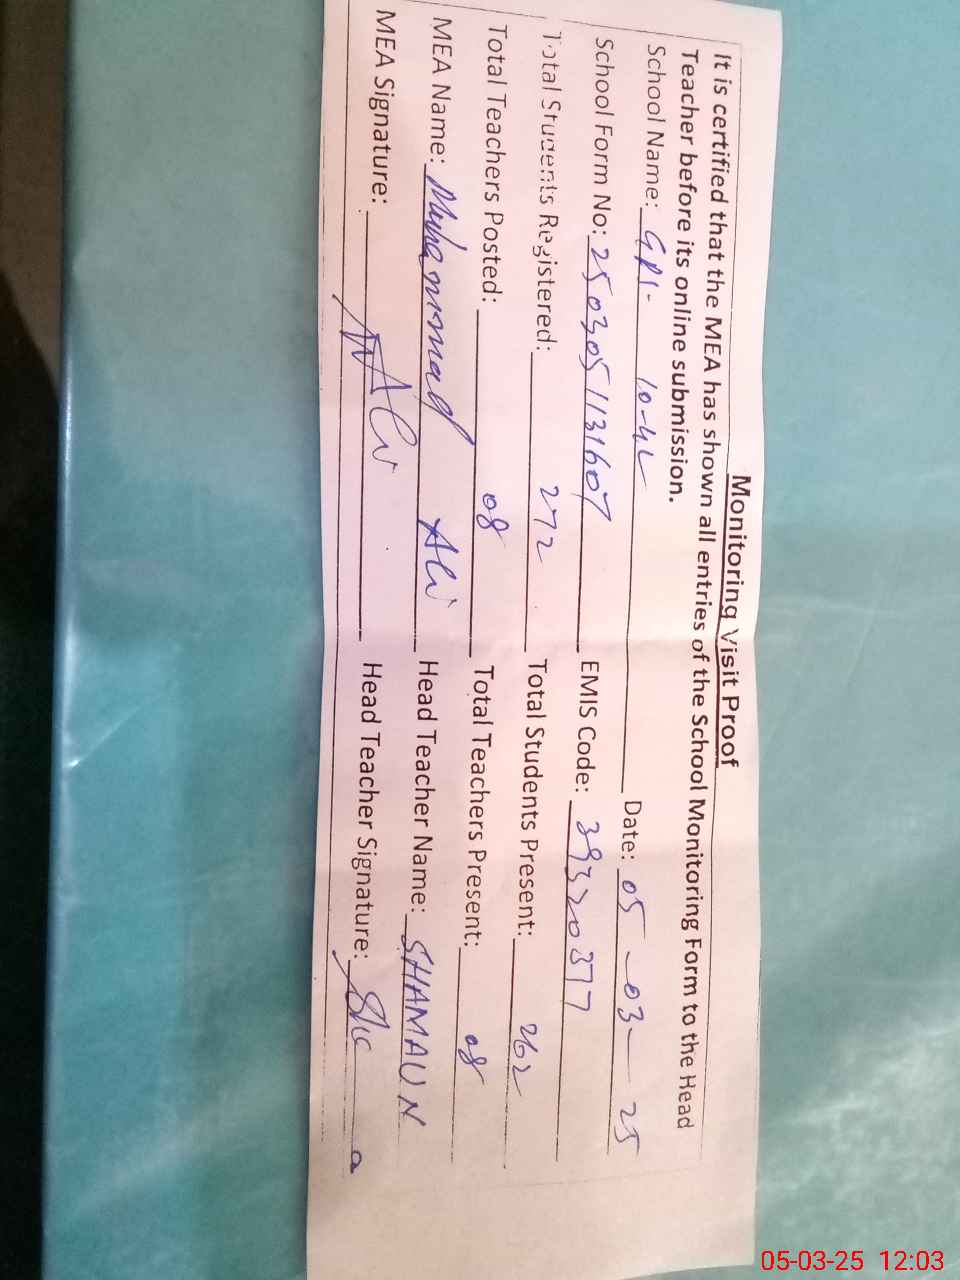 Monitoring Visit Proof
It is certified that the MEA has shown all entries of the School Monitoring Form to the Head
Teacher before its online submission.
School Name: GPS 10-4L Date: 05-03-25
School Form No: 2503051131607 EMIS Code: 39320377
Total Students Registered: 272 Total Students Present: 262
Total Teachers Posted: 08 Total Teachers Present: 08
MEA Name: Muhammad Ali Head Teacher Name: SHAMAUN
MEA Signature: Ali Head Teacher Signature:
05-03-25 12:03